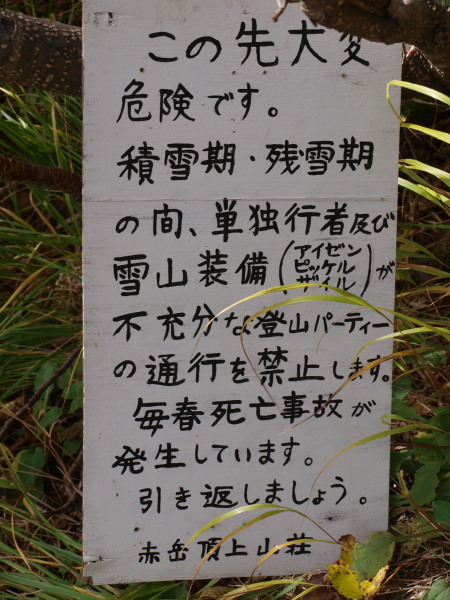 この先大変
危険です。
積雪期・残雪期
の間、単独行者及び
雪山装備(アイゼン
ピッケル
ザイル)が
不充分な登山パーティー
の通行を禁止します。
毎春死亡事故が
発生しています。
引き返しましょう。
赤岳頂上山荘